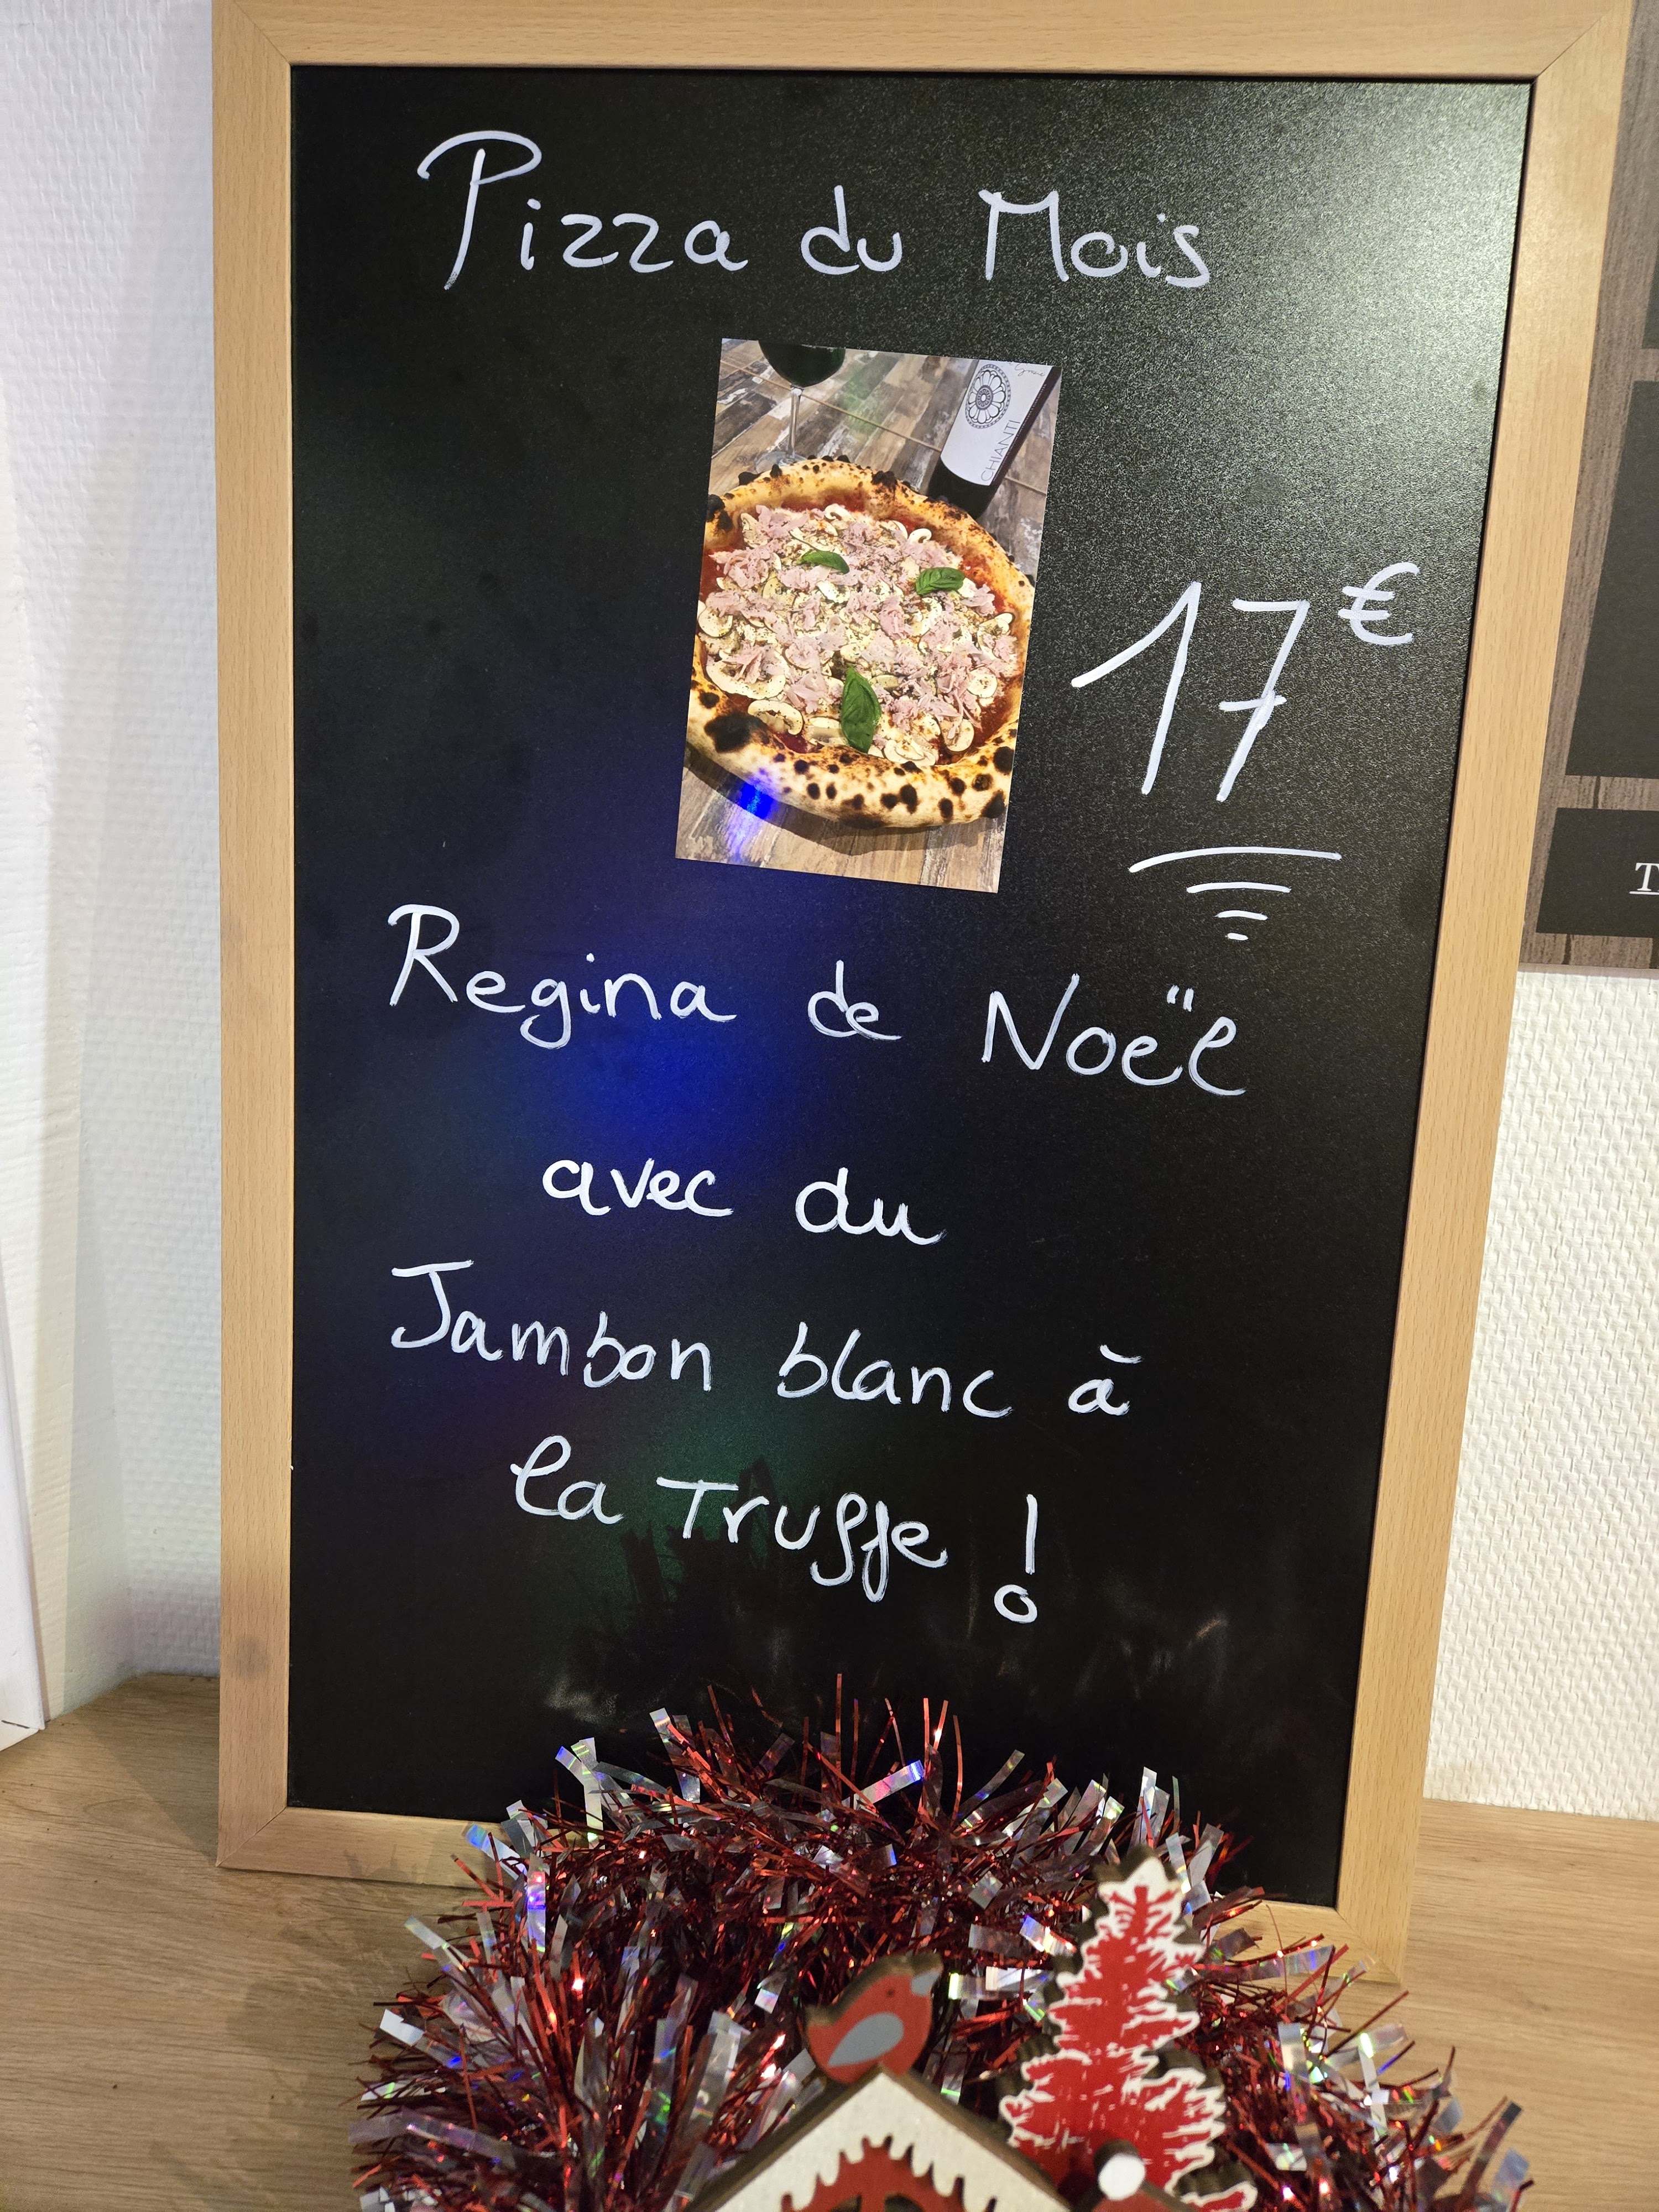 Pizza du Mois
CHIANTI
17€
Regina de Noël
avec du
Jambon blanc à
la Truffe !
T